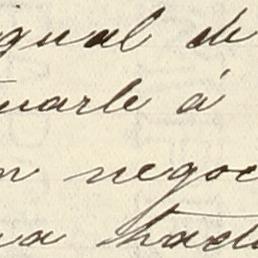 igual de
tuarle á
n negoc
na trad